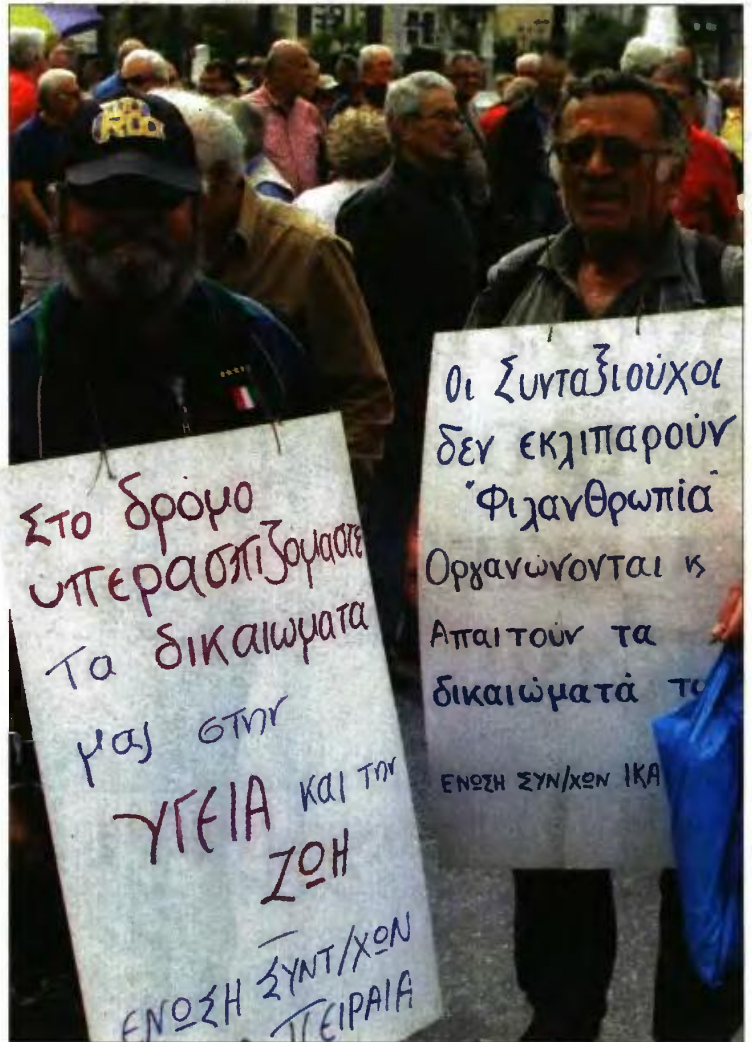 Στο δρόμο
υπερασπιζόμαστε
Τα δικαιωματα
μας στην
ΥΓΕΙΑ και την
ΖΩΗ
ΕΝΩΣΗ ΣΥΝΤ/ΧΩΝ
ΠΕΙΡΑΙΑ
Οι Συνταξιούχοι
δεν εκλιπαρούν
"Φιλανθρωπία"
Οργανώνονται κ
Απαιτούν τα
δικαιώματά το
ΕΝΩΣΗ ΣΥΝ/ΧΩΝ ΙΚΑ